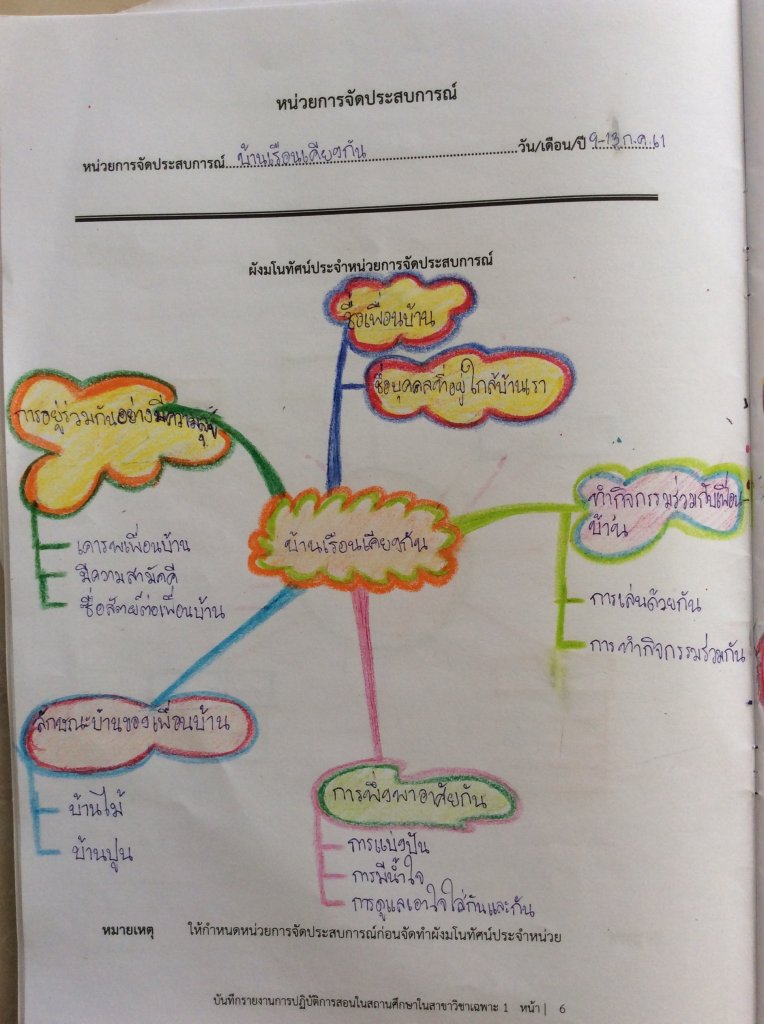 หน่วยการจัดประสบการณ์
หน่วยการจัดประสบการณ์ บ้านเรือนเคียงกัน วัน/เดือน/ปี 9-13 ก.ค. 61
ผังมโนทัศน์ประจำหน่วยการจัดประสบการณ์
ชื่อเพื่อนบ้าน
ชื่อบุคคลที่อยู่ใกล้บ้านเรา
การอยู่ร่วมกันอย่างมีความสุข
เคารพเพื่อนบ้าน
มีความสามัคคี
ซื่อสัตย์ต่อเพื่อนบ้าน
บ้านเรือนเคียงกัน
ทำกิจกรรมร่วมกับเพื่อน-
บ้าน
การเล่นด้วยกัน
การทำกิจกรรมร่วมกัน
ลักษณะบ้านของเพื่อนบ้าน
บ้านไม้
บ้านปูน
การพึ่งพาอาศัยกัน
การแบ่งปัน
การมีน้ำใจ
การดูแลเอาใจใส่กันและกัน
หมายเหตุ ให้กำหนดหน่วยการจัดประสบการณ์ก่อนจัดทำผังมโนทัศน์ประจำหน่วย
บันทึกรายงานการปฏิบัติการสอนในสถานศึกษาในสาขาวิชาเฉพาะ 1 หน้า | 6